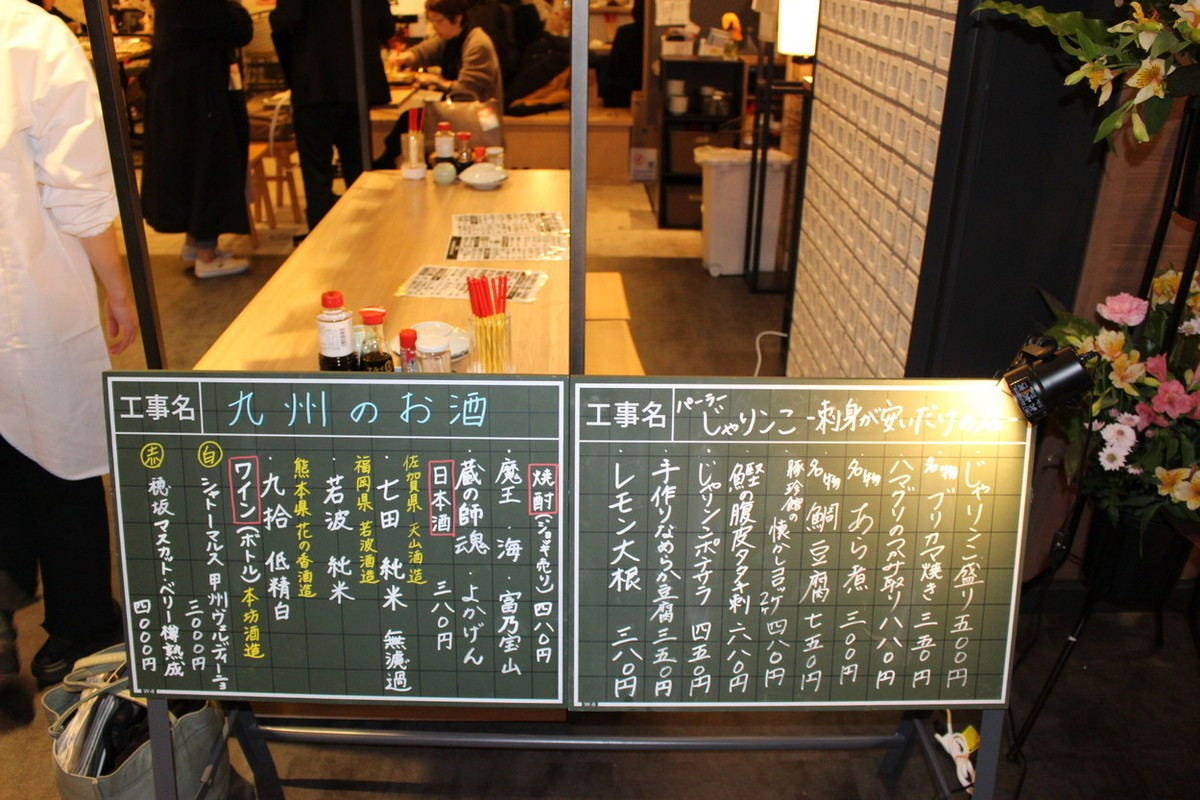 工事名
九州のお酒
焼酎(ジョッキ売り)四八〇円
魔王・海・富乃宝山
蔵の師魂・よかげん
日本酒 三八〇円
佐賀県 天山酒造
・七田 純米 無濾過
福岡県 若波酒造
・若波 純米
熊本県 花の香酒造
・九拾 低精白
ワイン(ボトル)本坊酒造
白 シャトーマルス 甲州ヴェルディーニョ
三〇〇〇円
赤 穂坂マスカット・ベリー樽熟成
四〇〇〇円
W-8
工事名
パーラー
じゃりンこ-刺身が安いだけの店-
・じゃリンこ盛り 五〇〇円
・名物 ブリカマ焼き 三五〇円
・ハマグリのつかみ取り 八八〇円
・名物 あら煮 三〇〇円
・名物 鯛豆腐 七五〇円
・豚珍館の懐かしコロッケ 2ケ 四八〇円
・鰹の腹皮タタキ刺 六八〇円
・じゃリンこポテサラ 四五〇円
・手作りなめらか豆腐 三五〇円
・レモン大根 三八〇円
W-8